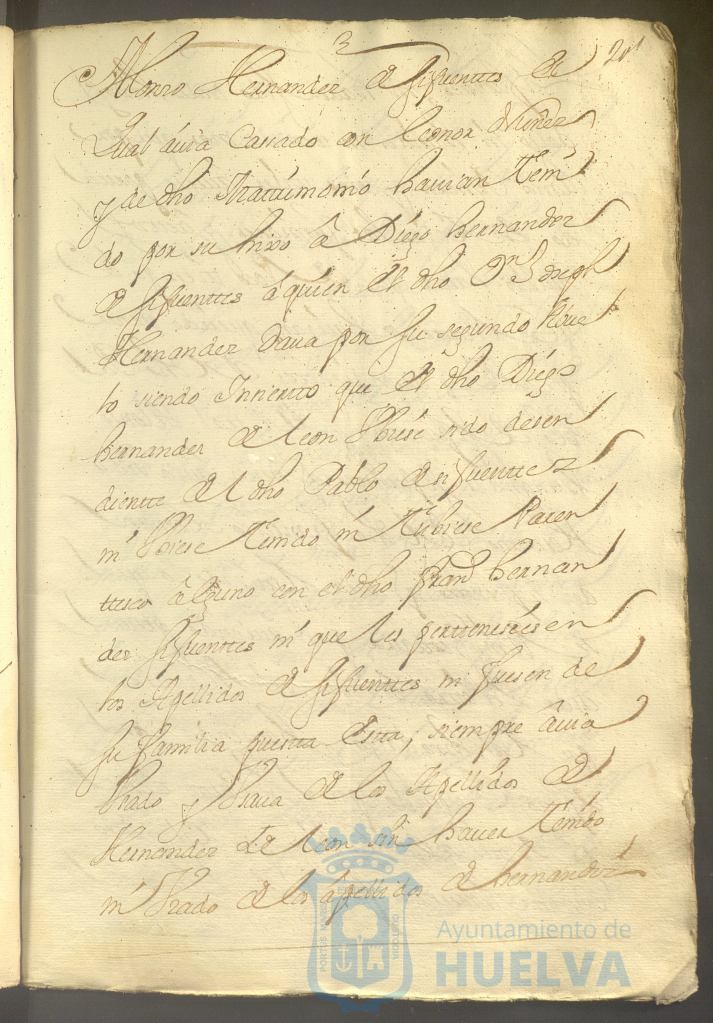 3
201
Alonso Hernandez de sifuenttes el
qual auia Cassado con leonor Nuñez
y de dho Mattrimonio hauian teni
do por su hixo â Diego hernandez
de sifuenttes a quien el dho
Hernandez daua por su segundo Abue
lo siendo Incierto que el dho Diego
hernandez de leon Vbiese sido desen
diente del dho Pablo de sifuenttez
ni Vbiese tenido ni tubiese Paren
ttesco alguno con el dho Franco hernan
dez sifuenttes ni que les perttenesiesen
los Apellidos de sifuenttes ni fuesen de
su familia puestta Estta, siempre âuia
Vsado y Vsaua de los Apellidos de
Hernandez de leon sin hauer tenido
ni Vsado de los apellidos de hernandez
Ayuntamiento de
HUELVA